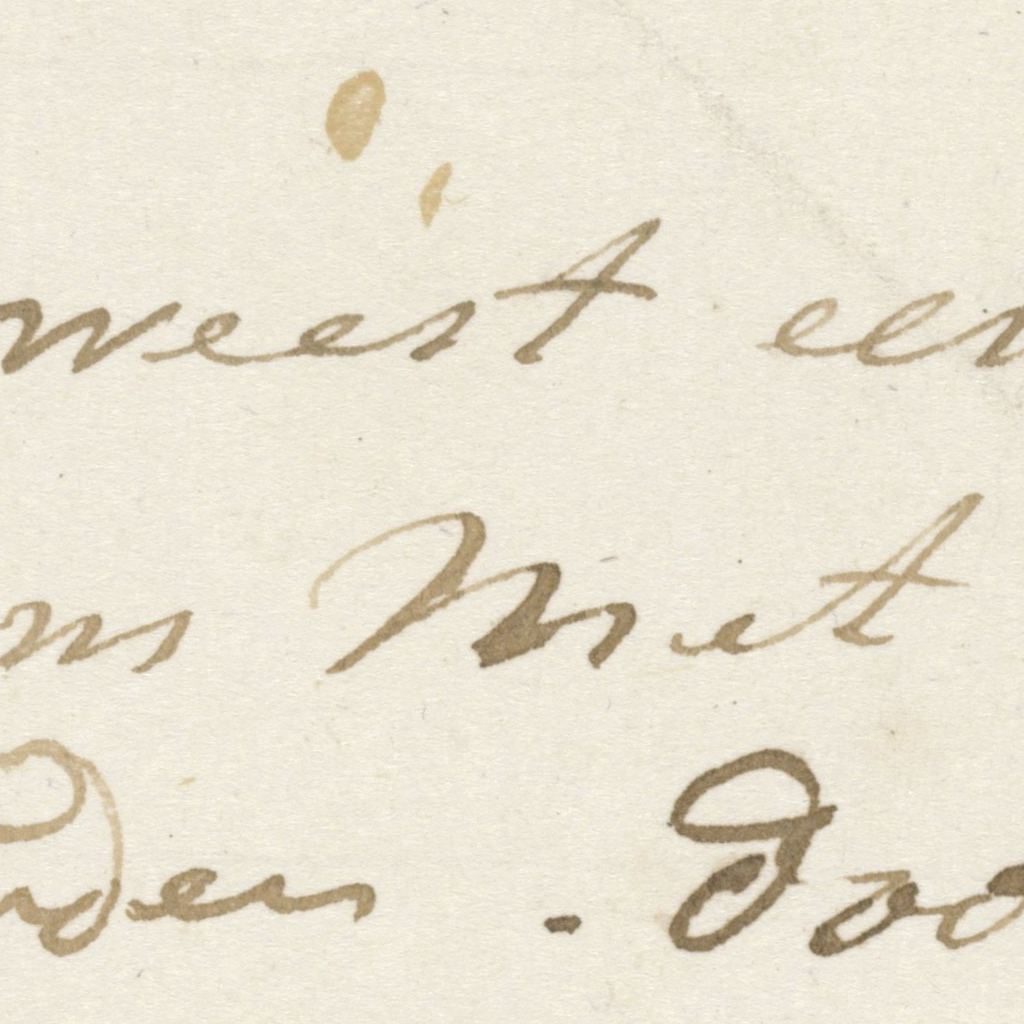 weest een
ns Met
nden - doo